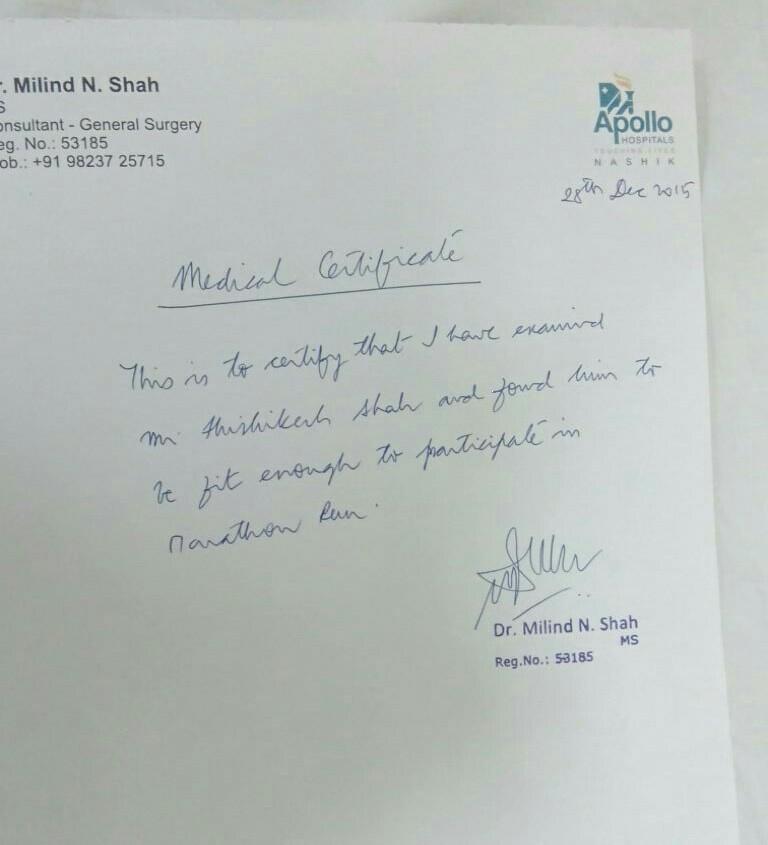 r. Milind N. Shah
S
onsultant - General Surgery
eg. No.: 53185
ob.: +91 98237 25715
Apollo
HOSPITALS
TOUCHING LIVES
NASHIK
28th Dec 2015
Medical Certificate
This is to certify that I have examined
Mr Hrishikesh Shah and found him to
be fit enough to participate in
Marathon Run.
Dr. Milind N. Shah
MS
Reg.No.: 53185